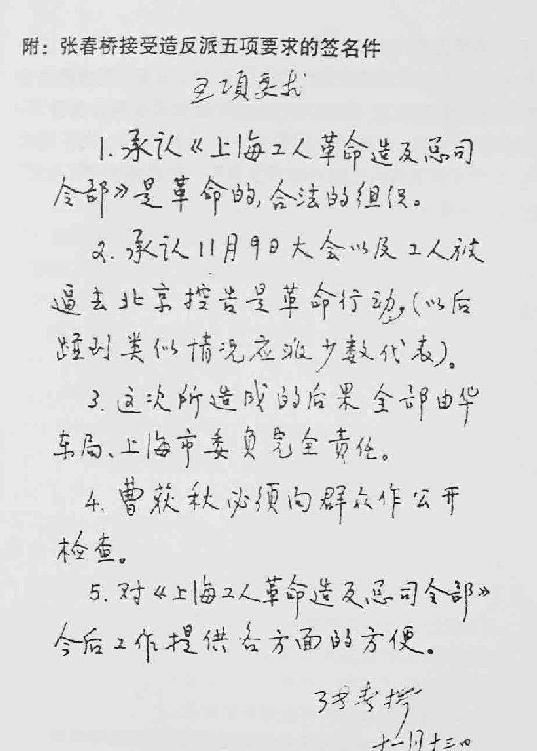 附：张春桥接受造反派五项要求的签名件
五项要求
1.承认《上海工人革命造反总司
令部》是革命的,合法的组织。
2.承认11月9日大会以及工人被
逼去北京控告是革命行动,(以后
碰到类似情况应派少数代表)。
3.这次所造成的后果全部由华
东局、上海市委负完全责任。
4.曹荻秋必须向群众作公开
检查。
5.对《上海工人革命造反总司令部》
今后工作提供各方面的方便。
张春桥
十一月十三日